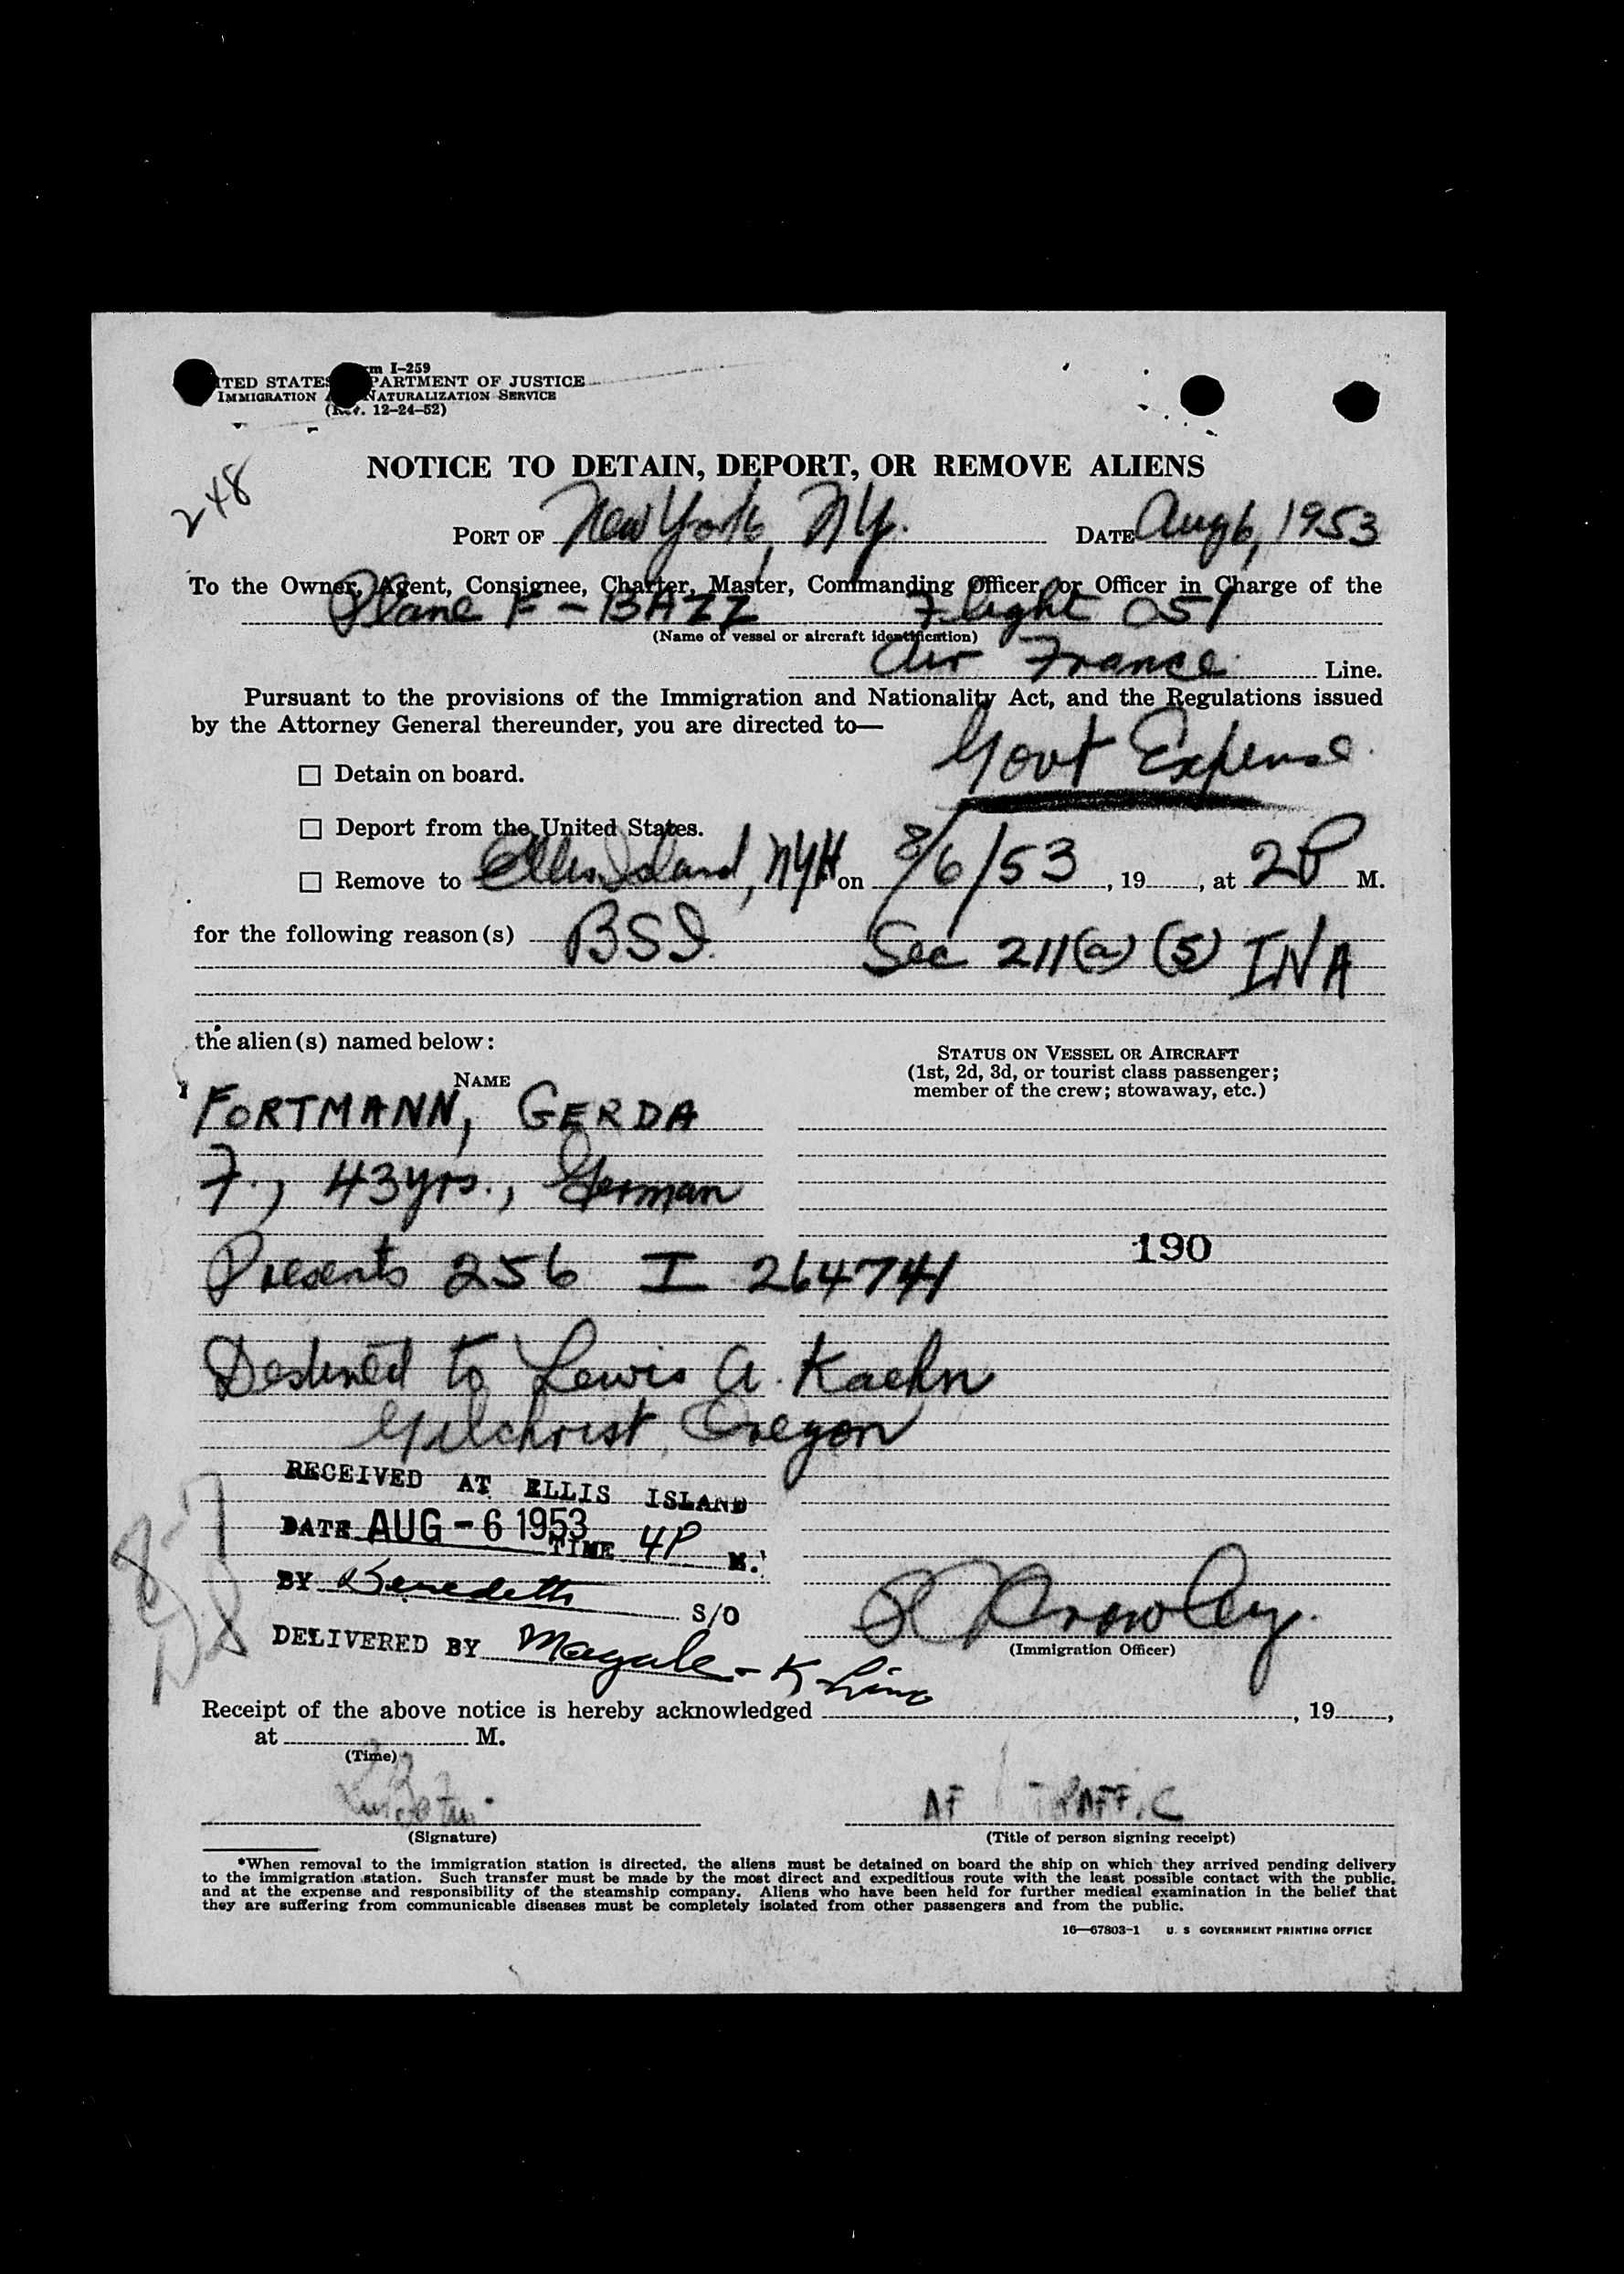 m I-259
ITED STATES PARTMENT OF JUSTICE
IMMIGRATION NATURALIZATION SERVICE
(Rev. 12-24-52)
248
NOTICE TO DETAIN, DEPORT, OR REMOVE ALIENS
PORT OF New York, N.Y. DATE Aug 6, 1953
To the Owner, Agent, Consignee, Charter, Master, Commanding Officer, or Officer in Charge of the
Plane F-BAZZ Flight 051
(Name of vessel or aircraft identification)
Air France Line.
Pursuant to the provisions of the Immigration and Nationality Act, and the Regulations issued
by the Attorney General thereunder, you are directed to—
Govt Expense.
☐ Detain on board.
☐ Deport from the United States.
☐ Remove to Ellis Island, NYH on 8/6/53, 19, at 2P M.
for the following reason(s) BSI. Sec 211(a) (5) INA
the alien(s) named below:
STATUS ON VESSEL OR AIRCRAFT
(1st, 2d, 3d, or tourist class passenger;
member of the crew; stowaway, etc.)
NAME
FORTMANN, GERDA
F., 43yrs., German
190
Presents 256 I 264744
Destined to Lewis A. Kaehn
Gilchrist, Oregon
RECEIVED AT ELLIS ISLAND
DATE AUG - 6 1953 TIME 4P M.
BY Benedetti S/O
DELIVERED BY Magale - K Line
8-7
Crowley
(Immigration Officer)
Receipt of the above notice is hereby acknowledged , 19,
at M.
(Time)
AF TRAFFIC
(Signature)
(Title of person signing receipt)
*When removal to the immigration station is directed, the aliens must be detained on board the ship on which they arrived pending delivery
to the immigration station. Such transfer must be made by the most direct and expeditious route with the least possible contact with the public,
and at the expense and responsibility of the steamship company. Aliens who have been held for further medical examination in the belief that
they are suffering from communicable diseases must be completely isolated from other passengers and from the public.
16—67803-1 U. S GOVERNMENT PRINTING OFFICE